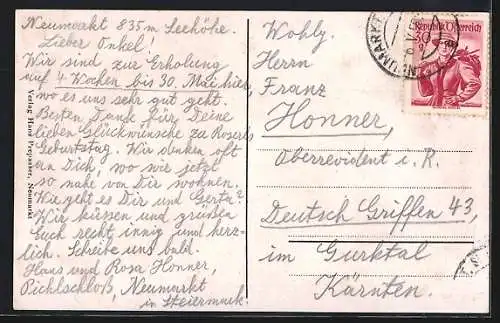 Neumarkt 835 m Seehöhe.
Lieber Onkel!
Wir sind zur Erholung
auf 4 Wochen bis 30. Mai hier,
wo es uns sehr gut geht.
Besten Dank für Deine
lieben Glückwünsche zu Roserls
Geburtstag. Wir denken oft
an Dich, wo wir jetzt
so nahe von Dir wohnen.
Wie geht es Dir und Gerta?
Wir küssen und grüßen
Euch recht innig und herz-
lich. Schreibe uns bald.
Hans und Rosa Honner,
Pichlschloß, Neumarkt
in Steiermark
Verlag Hans Preyssler, Neumarkt
Wohlg.
Herrn
Franz
Honner,
Oberrevident i. R.
Deutsch Griffen 43,
im Gurktal
Kärnten.
NEUMARKT
Republik Österreich
30